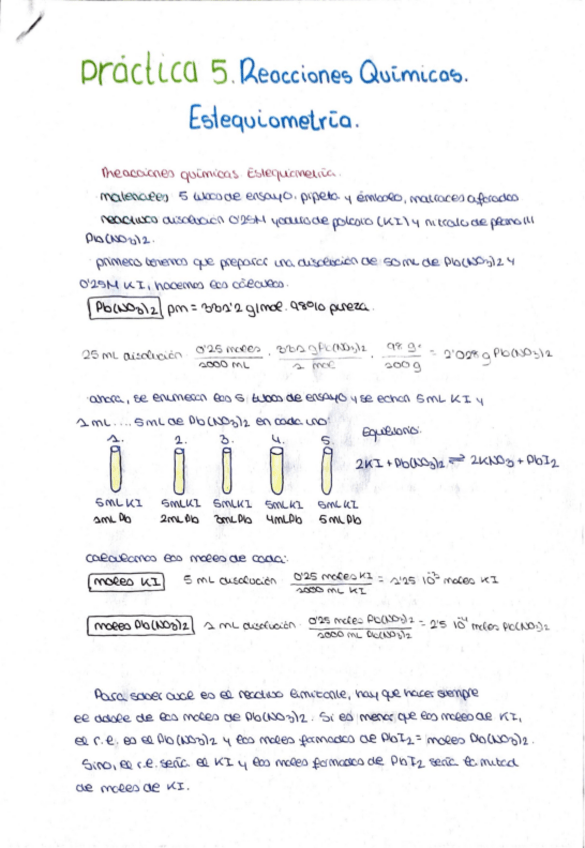 práctica 5. Reacciones Químicas.
Estequiometría.
Reacciones químicas. Estequiometría.
materiales 5 tubos de ensayo, pipeta y émbolo, matraces aforados
reactivos disolución 0'25M yoduro de potasio (KI) y nitrato de plomo II
Pb(NO3)2.
primero tenemos que preparar una disolución de 50 mL de Pb(NO3)2 y
0'25M KI, hacemos los cálculos.
Pb(NO3)2 pm = 331'2 g/mol. 98% pureza.
25 mL disolución 0'25 moles / 1000 mL · g Pb(NO3)2 / 1 mol · 98 g. / 100 g = 2'028 g Pb(NO3)2
ahora, se enumeran los 5 tubos de ensayo y se echan 5mL KI y
1 mL.... 5mL de Pb(NO3)2 en cada uno:
1. 2. 3. 4. 5.
Equilibrio:
2KI + Pb(NO3)2 ⇌ 2KNO3 + PbI2
5mL KI 5mL KI 5mL KI 5mL KI 5mL KI
1mL Pb 2mL Pb 3mL Pb 4mL Pb 5mL Pb
calculamos los moles de cada:
moles KI 5 mL disolución 0'25 moles KI / 1000 mL KI = 1'25 10⁻³ moles KI
moles Pb(NO3)2 1 mL disolución 0'25 moles Pb(NO3)2 / 1000 mL Pb(NO3)2 = 2'5 10⁻⁴ moles Pb(NO3)2
Para saber cual es el reactivo limitante, hay que hacer siempre
el doble de los moles de Pb(NO3)2. Si es menor que los moles de KI,
el r.e. es el Pb(NO3)2 y los moles formados de PbI2 = moles Pb(NO3)2.
Sino, el r.e. sería el KI y los moles formados de PbI2 sería la mitad
de moles de KI.